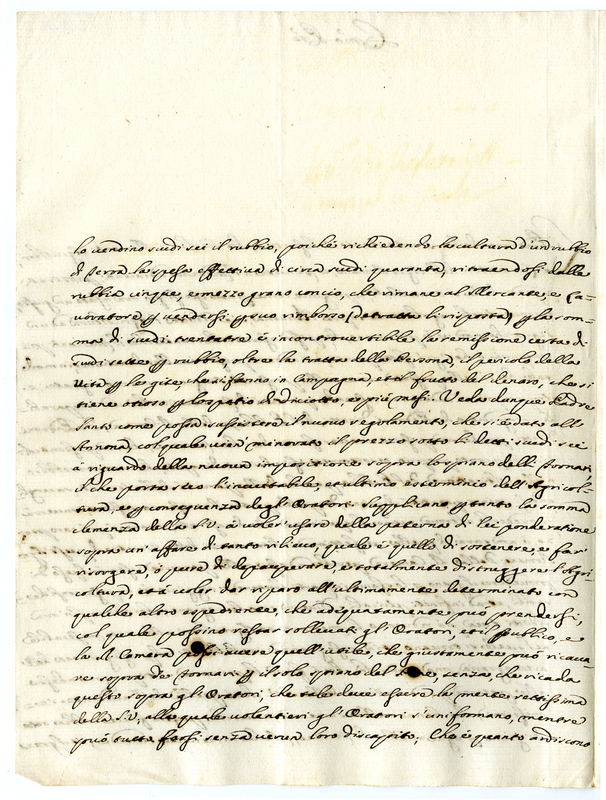 lo vendino scudi sei il rubbio, poiche richiedendo la cultura d'un rubbio
di Terra la spesa effettiva di circa scudi quaranta, ritraendosi dalle
rubbia cinque, e mezzo grano concio, che rimane al Mercante, e La-
voratore p vendersi p suo rimborso (detratta la risposta) p la som-
ma di scudi trentatre è incontrovertibile la remissione certa di
scudi sette p rubbio, oltre la tratta della Persona, il pericolo della
Vita p le gite, che si fanno in Campagna, et il frutto del denaro, che si
tiene otioso p lo spatio di diciotto, e più mesi. Veda dunque Padre
Santo come possa sussistere il nuovo regolamento, che si è dato all'
Annona, col quale vien minorato il prezzo sotto li detti scudi sei
à riguardo della nuova impositione sopra lo spiano delli Fornari
il che porta seco l'inevitabile, et ultimo esterminio dell'Agricol-
tura, e p conseguenza degl'Oratori. Supplicano p tanto la somma
clemenza della S.V. à voler usare della paterna di lei ponderatione
sopra un'affare di tanto rilievo, quale è quello di sostenere, e far
risorgere, ò pure di depauperare, e totalmente distruggere l'Agri-
coltura, et à voler dar riparo all'ultimamente determinato con
qualche altro espediente, che adequatamente può prendersi,
col quale possino restar sollevati gl'Oratori, et il Publico, e
la R. Camera possi avere quell'utile, che giustamente può ricava-
re sopra de Fornari p il solo spiano del senza, che ricada
questo sopra gl'Oratori, che tale deve essere la mente rettissima
della S.V., alla quale volentieri gl'Oratori s'uniformano, mentre
può tutto farsi senza verun loro discapito; Che è quanto ardiscono